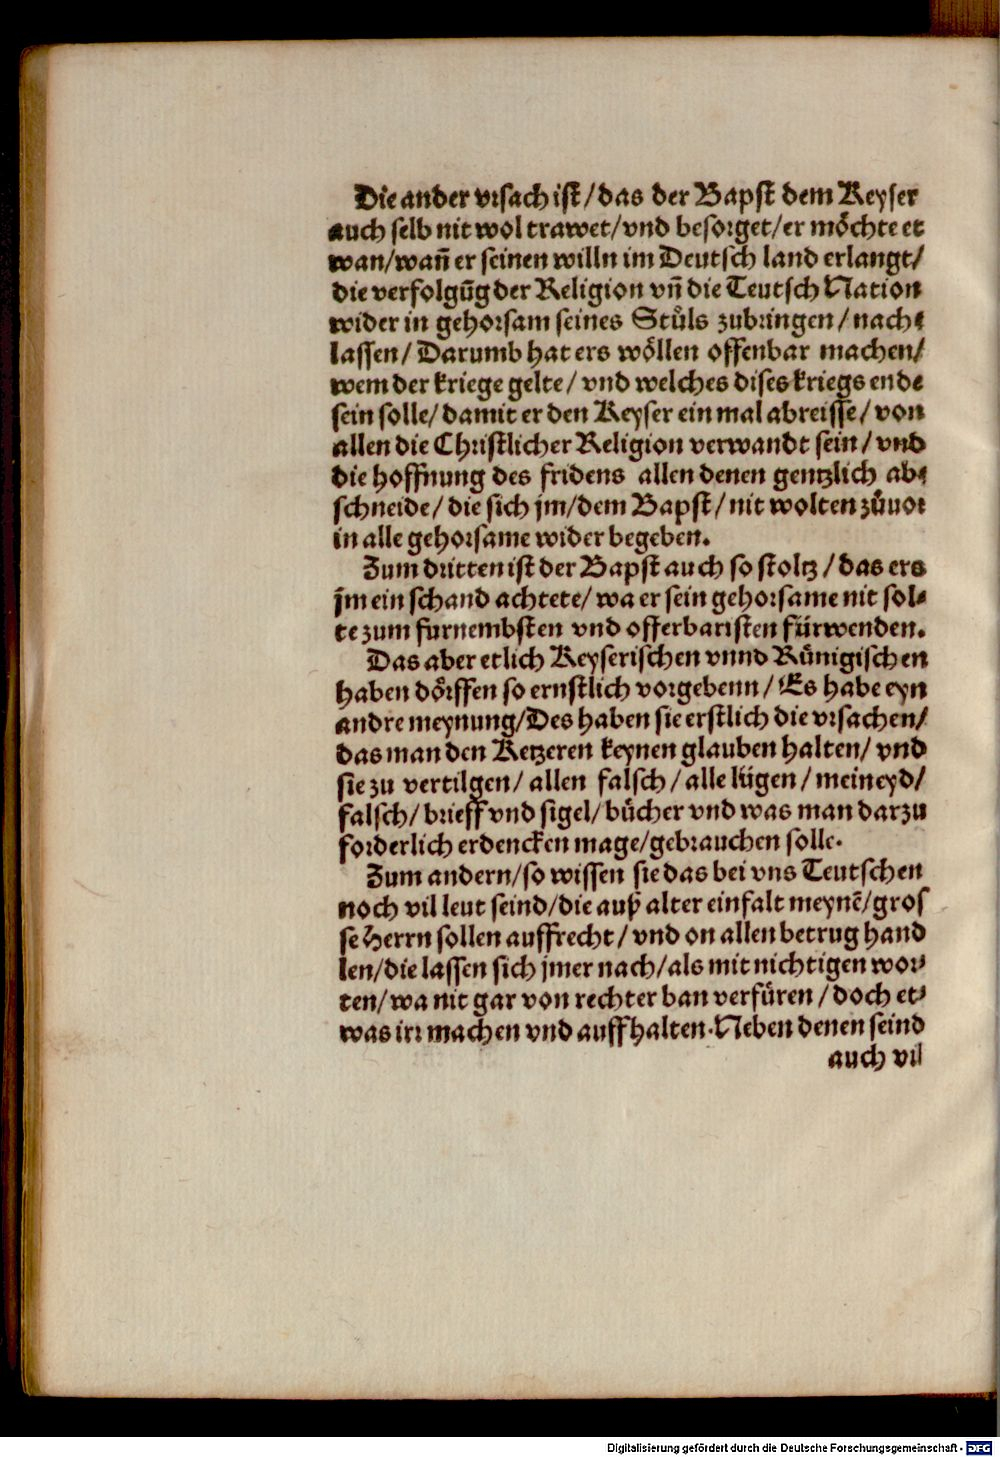 Die ander vrsach ist/das der Bapst dem Keyser
auch selb nit wol trawet/vnd besorget/er möchte et
wan/wañ er seinen willn im Deutsch land erlangt/
die verfolgūg der Religion vñ die Teutsch Nation
wider in gehorsam seines Stůls zubringen/nach-
lassen/Darumb hat ers wöllen offenbar machen/
wem der kriege gelte/vnd welches dises kriegs ende
sein solle/damit er den Keyser ein mal abreissē/von
allen die Christlicher Religion verwandt sein/vnd
die hoffnung des fridens allen denen gentzlich ab-
schneide/die sich jm/dem Bapst/nit wolten zůuor
in alle gehorsame wider begeben.
Zum dritten ist der Bapst auch so stoltz/das ers
jm ein schand achtete/wa er sein gehorsame nit sol-
te zum furnembsten vnd offerbaristen fürwenden.
Das aber etlich Keyserischen vnnd Künigischen
haben dörffen so ernstlich vorgebenn/Es habe eyn
andre meynung/Des haben sie erstlich die vrsachen/
das man den Ketzeren keynen glauben halten/vnd
sie zu vertilgen/allen falsch/alle lügen/meineyd/
falsch/brieff vnd sigel/bücher vnd was man darzu
forderlich erdencken mage/gebrauchen solle.
Zum andern/so wissen sie das bei vns Teutschen
noch vil leut seind/die auß alter einfalt meynē/gros
se Herrn sollen auffrecht/vnd on allen betrug hand
len/die lassen sich jmer nach/als mit nichtigen wor-
ten/wa nit gar von rechter ban verfüren/doch et-
was irr machen vnd auffhalten. Neben denen seind
auch vil
Digitalisierung gefördert durch die Deutsche Forschungsgemeinschaft - DFG